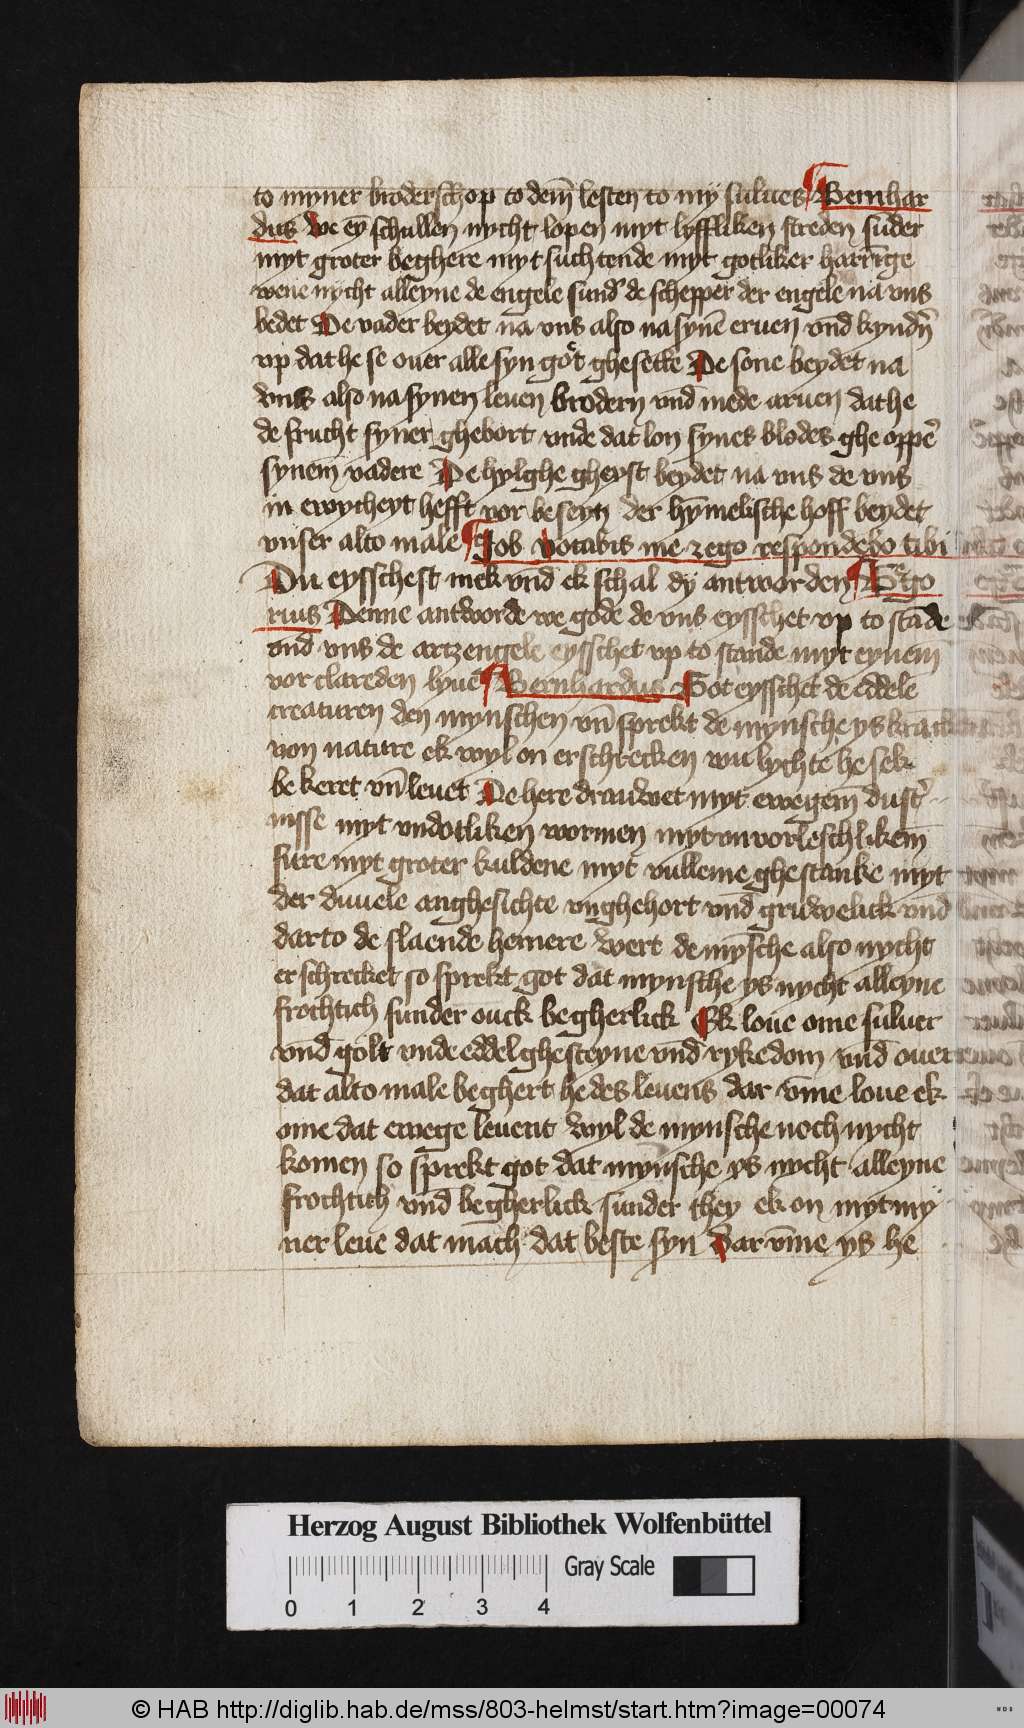 to myner broderschop to dem̄ lesten to my sulues Bernhar
dus We ey̅ schullen nycht lopen myt lyffliken screden sūder
myt groter beghere myt suchtende myt gotliker
wene nycht alleyne de engele sund' de schepper der engele na vns
bedet De vader beydet na vns also na syne̅ eruen vnd kynd'n̄
vp dat he se ouer alle syn got ghesette De sone beydet na
vns also na synen leuen brodern vnd̄ mede aruen dat he
de frucht syner ghebort vnde dat lon synes blodes ghe oppe'
synem vadere De hylghe gheyst beydet na vns de vns
in ewycheyt hefft vor beseyn der hȳmelische hoff beydet
vnser alto male Job Vocabis me z ego respondebo tibi
Du eysschest mek vnd ek schal dy antworden Gego
rius Denne antworde we gode de vns eysschet vp to stāde
vnd vns de artzengele eysschet vp to stande myt eynem
vorclareden lyue Bernhardus Got eysschet de eddele
creaturen den mynschen vn̄ sprekt de mynsche ys kranck
von nature ek wyl on erschrecken wu lychte he sek
bekeret vn̄ leuet De here drauwet myt ewegem̄ dust'
nisse myt vndotliken wormen myt vnvorleschlikem̄
fure myt groter kuldene myt vulleme ghestanke myt
der duuele anghesichte vnghehort vnd̄ gruwelick vnd̄
darto de slaende hemere Wert de my̅sche also nycht
erschrecket so sprekt got dat mynsche ys nycht alleyne
frochtich sunder ouck begherlick Ek loue ome suluer
vnd̄ golt vnde eddelghesteyne vnd̄ rykedom vnd̄ ouer
dat alto male beghert he des leuens dar vm̄e loue ek
ome dat ewege leuent Wyl de mynsche noch nycht
komen so sprekt got dat mynsche ys nycht alleyne
frochtich vnd̄ begherlick sunder they ek on myt my
ner leue dat mach dat beste syn Dar vm̄e ys he
Herzog August Bibliothek Wolfenbüttel
Gray Scale
0 1 2 3 4
© HAB http://diglib.hab.de/mss/803-helmst/start.htm?image=00074